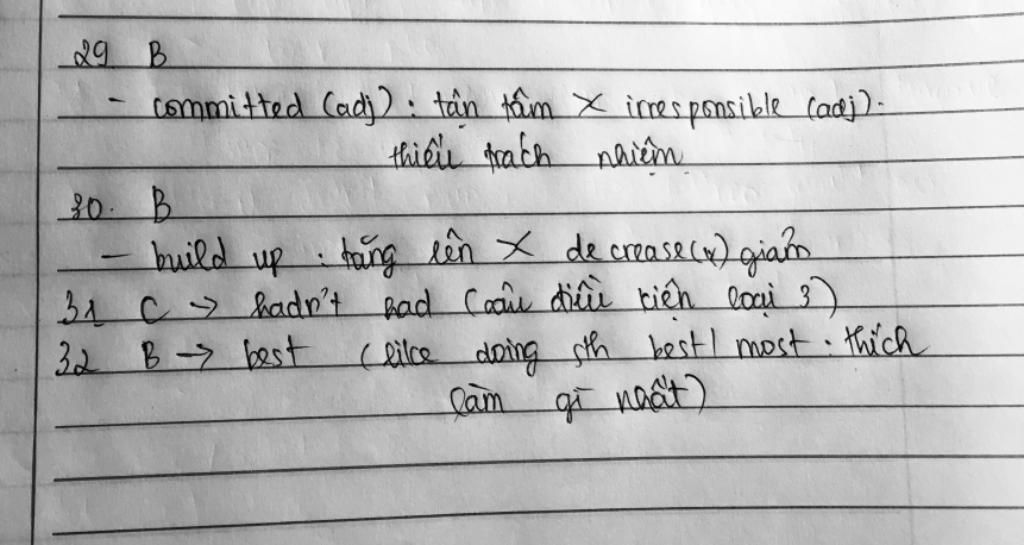 29 B
- committed (adj) : tận tâm X irresponsible (adj).
thiếu trách nhiệm
30. B
- build up : tăng lên X decrease (v) giảm
31 C → hadn't had (câu điều kiện loại 3)
32 B → best (like doing sth best / most : thích
làm gì nhất)